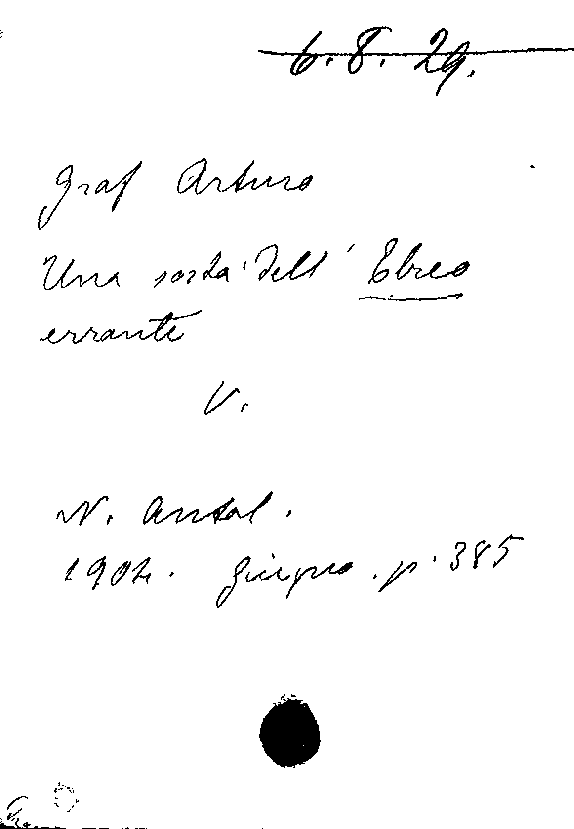 6.8.29.
Graf Arturo
Una sosta dell'Ebreo
errante
V.
N. Antol.
1904. giugno. p. 385